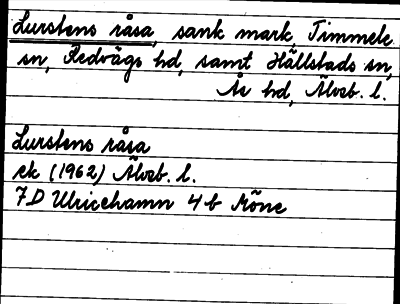 Lurstens råsa, sank mark, Timmele
sn, Redvägs hd, samt Hällstads sn,
Ås hd, Älvsb. l.
Lurstens råsa
ek (1962) Älvsb. l.
7D Ulricehamn 4b Möne